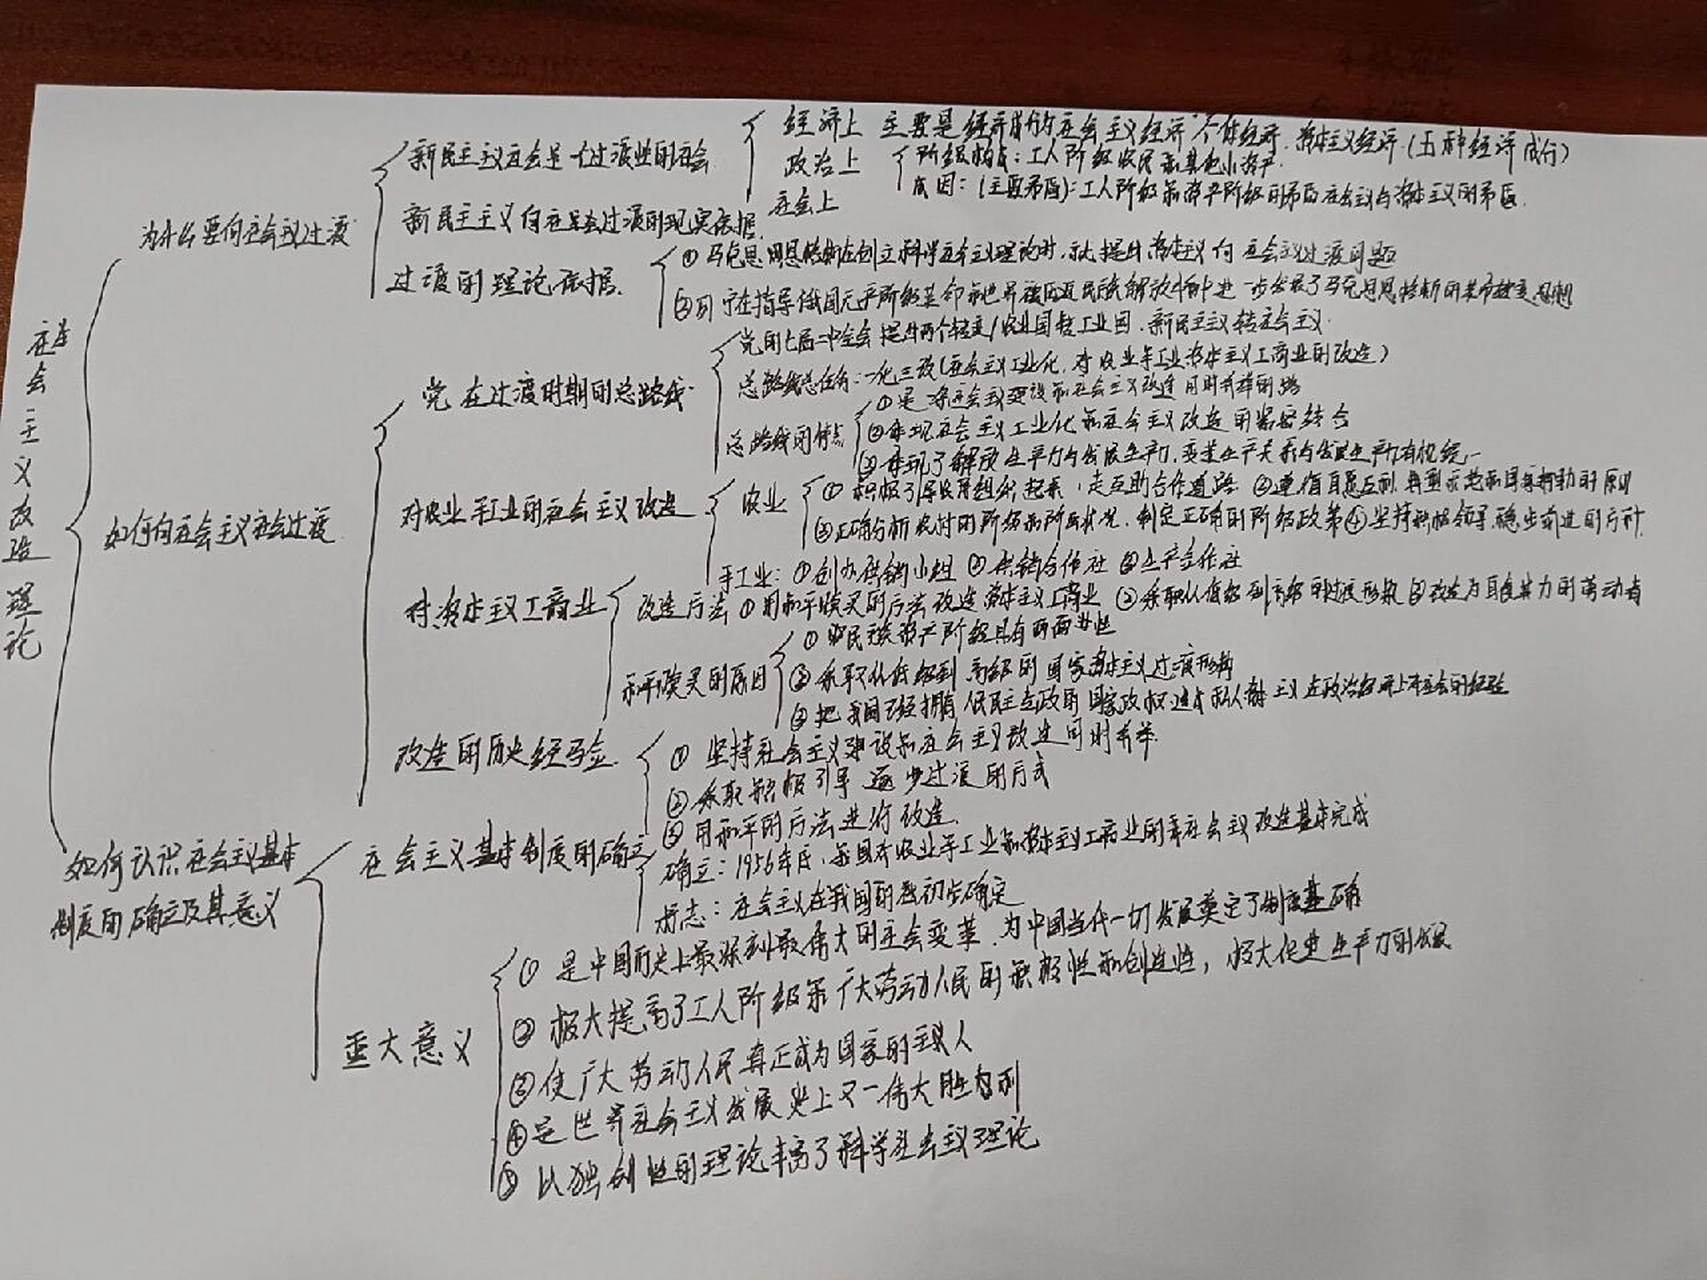 社会主义改造理论
为什么要向社会主义过渡
新民主主义社会是一个过渡性的社会
经济上 主要是 社会主义经济 个体经济 资本主义经济(五种经济成分)
政治上 阶级构成:工人阶级 农民和其他小资产
社会上 (主要矛盾):工人阶级和资产阶级的矛盾 社会主义与资本主义的矛盾
新民主主义向社会过渡的现实依据
过渡的理论依据
① 马克思 恩格斯在创立科学社会主义理论时,就提出资本主义向社会主义过渡问题
②列宁在指导俄国无产阶级革命和世界被压迫民族解放斗争中进一步发展了马克思恩格斯的 思想
如何向社会主义社会过渡
党在过渡时期的总路线
党的七届二中全会提出两个转变/农业国转工业国,新民主主义转社会主义
总路线总任务:一化三改(社会主义工业化,对农业手工业资本主义工商业的改造)
总路线的特点
①是一条社会主义建设和社会主义改造同时并举的路
②体现社会主义工业化和社会主义改造的紧密结合
③体现了解放生产力与发展生产力,变革生产关系与发展生产力有机统一
对农业手工业的社会主义改造
农业
①积极引导农民组织起来,走互助合作道路 ②遵循自愿互利 典型示范和国家帮助的原则
③正确分析农村的阶级和阶层状况,制定正确的阶级政策④坚持积极领导 稳步前进的方针
手工业:①创办供销小组 ②供销合作社 ③生产合作社
对资本主义工商业
改造方法①用和平赎买的方法改造资本主义工商业 ②采取从低级到高级的过渡形式 ③改造为自食其力的劳动者
和平赎买的原因
① 民族资产阶级具有两面性
②采取从低级到高级的国家资本主义过渡形式
③把我国已经拥有 国家政权
改造的历史经验
① 坚持社会主义建设和社会主义改造同时并举
②采取积极引导 逐步过渡的方式
③用和平的方法进行改造
如何认识社会主义基本
制度的确立及其意义
社会主义基本制度的确立
确立:1956年底,我国对农业手工业和资本主义工商业的 社会主义改造基本完成
标志:社会主义在我国的 初步确定
重大意义
① 是中国历史上最深刻最伟大的社会变革,为中国当代一切发展奠定了制度基础
② 极大提高了工人阶级和广大劳动人民的积极性和创造性,极大促进生产力的发展
③使广大劳动人民真正成为国家的主人
④是世界社会主义发展史上又一伟大胜利
⑤ 以独创性的理论丰富了科学社会主义理论